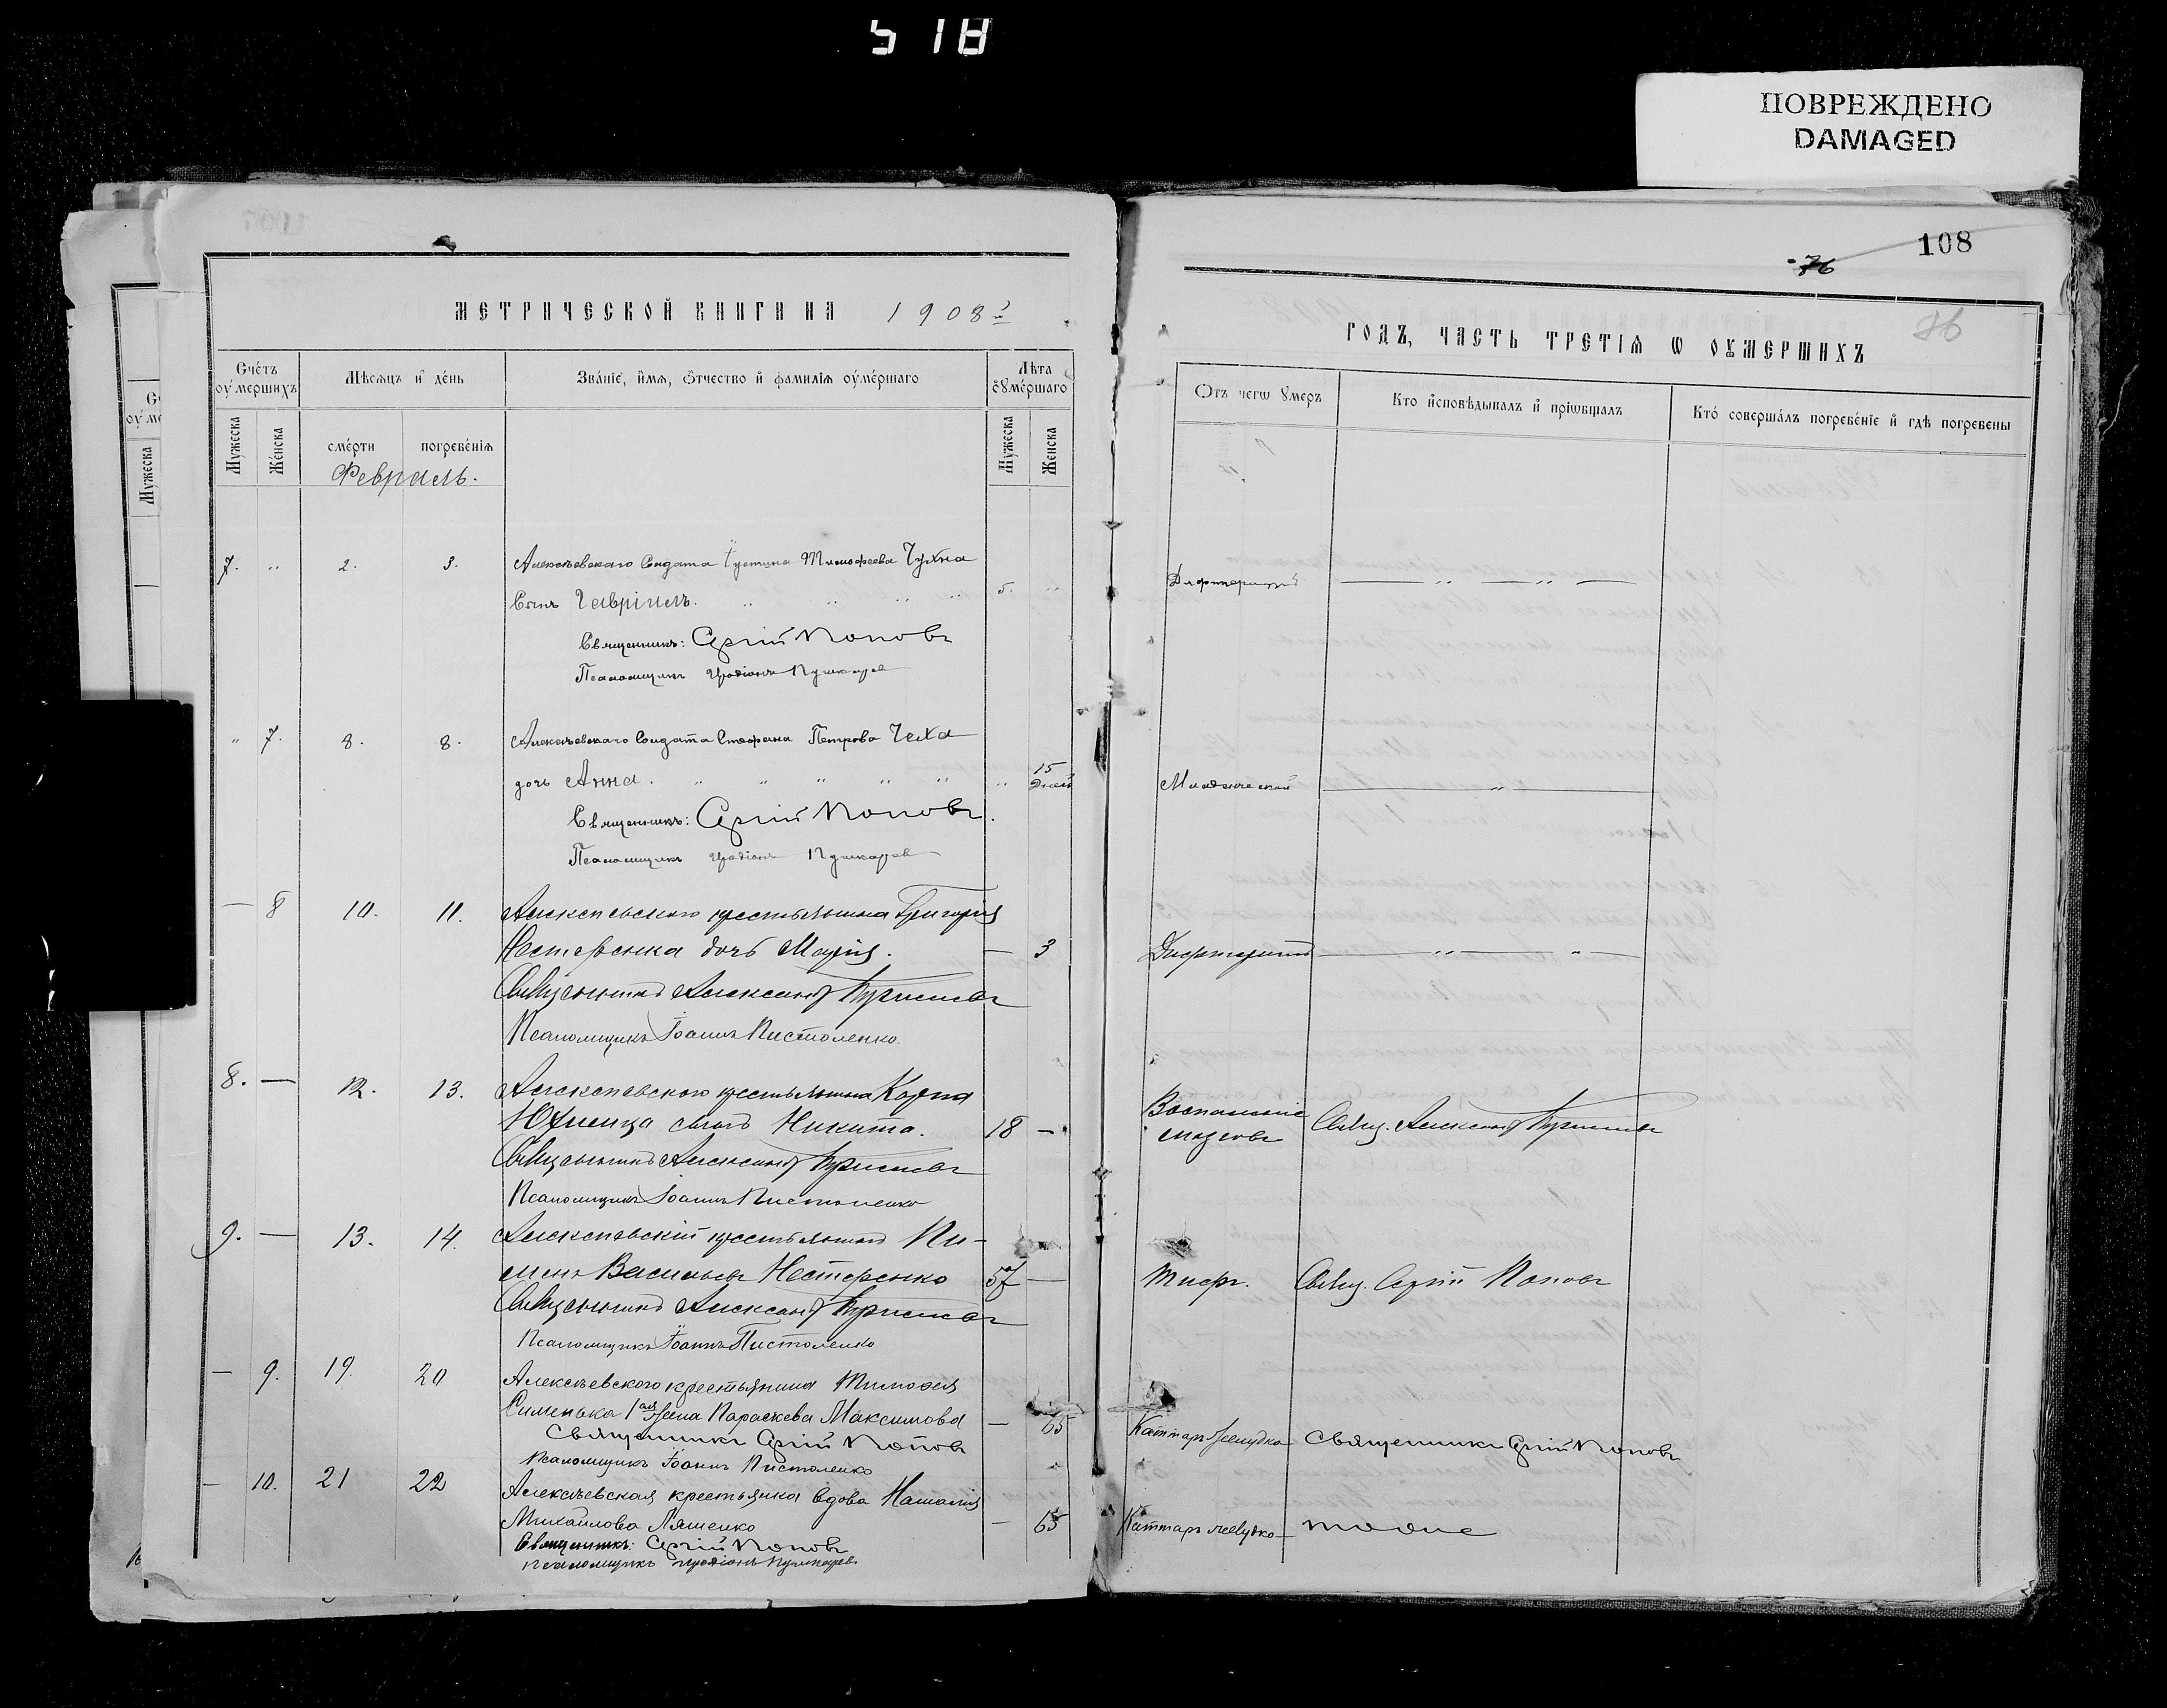 518
ПОВРЕЖДЕНО
DAMAGED
МЕТРИЧЕСКОЙ КНИГИ НА 1908 г
Счетъ оумершихъ
Мѣсяцъ и день
Званіе, имя, отчество и фамилія оумершаго
Лѣта оумершаго
Мужеска
Женска
смерти
погребенія
Мужеска
Женска
Февраль.
7. " 2. 3. Алексѣевскаго Солдата Густина Тимофеева Чухна
Сынъ Гавріилъ. " " " " 5. "
Священникъ: Сергій Поповъ
Псаломщикъ Иродіонъ Пушкарев
" 7. 8. 8. Алексѣевскаго Солдата Стефана Петрова Чеха
дочь Анна. " " " " " " 15 Дней
Священникъ: Сергій Поповъ.
Псаломщикъ Иродіонъ Пушкарев
— 8 10. 11. Алексѣевского крестьянина Григорія
Нестеренка дочь Марія. — 3
Священникъ Александръ
Псаломщикъ Іоаннъ Пистоленко.
8. — 12. 13. Алексѣевского крестьянина Карпа
Юхимца сынъ Никита. 18 —
Священникъ Александръ
Псаломщикъ Іоаннъ Пистоленко
9. — 13. 14. Алексѣевскій крестьянинъ Пи-
менъ Васильевъ Нестеренко 57 —
Священникъ Александръ
Псаломщикъ Іоаннъ Пистоленко
— 9. 19. 20 Алексѣевского крестьянина Тимофея
Сименька 1ая жена Параскева Максимова — 65
Священникъ Сергій Поповъ
Псаломщикъ Іоаннъ Пистоленко
— 10. 21 22 Алексѣевская крестьянка вдова Наталія
Михайлова Ляшенко — 65
Священникъ: Сергій Поповъ
Псаломщикъ Иродіонъ Пушкаревъ
108
76
76
ГОДЪ, ЧАСТЬ ТРЕТІЯ Ѡ ОУМЕРШИХЪ
Отъ чегѡ умеръ
Кто исповѣдывалъ и пріѡбщалъ
Кто совершалъ погребеніе и гдѣ погребены
Дифтеритъ — " — " —
Младенческой — " —
Дифтеритъ — " — " —
Воспаленіе
мозговъ Свящ. Александръ
Тифъ. Свящ. Сергій Поповъ
Каттаръ желудка Священникъ Сергій Поповъ
Каттаръ желудка тоже